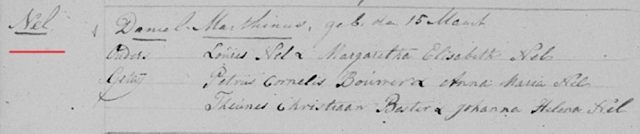 Nel Daniel Marthinus, geb. den 15 Maart
Ouders Louies Nel & Margaretha Elisabeth Nel
Getuig Petrus Cornelis Bouwer & Anna Maria Nel
Theunes Christiaan Bester & Johanna Helena Nel